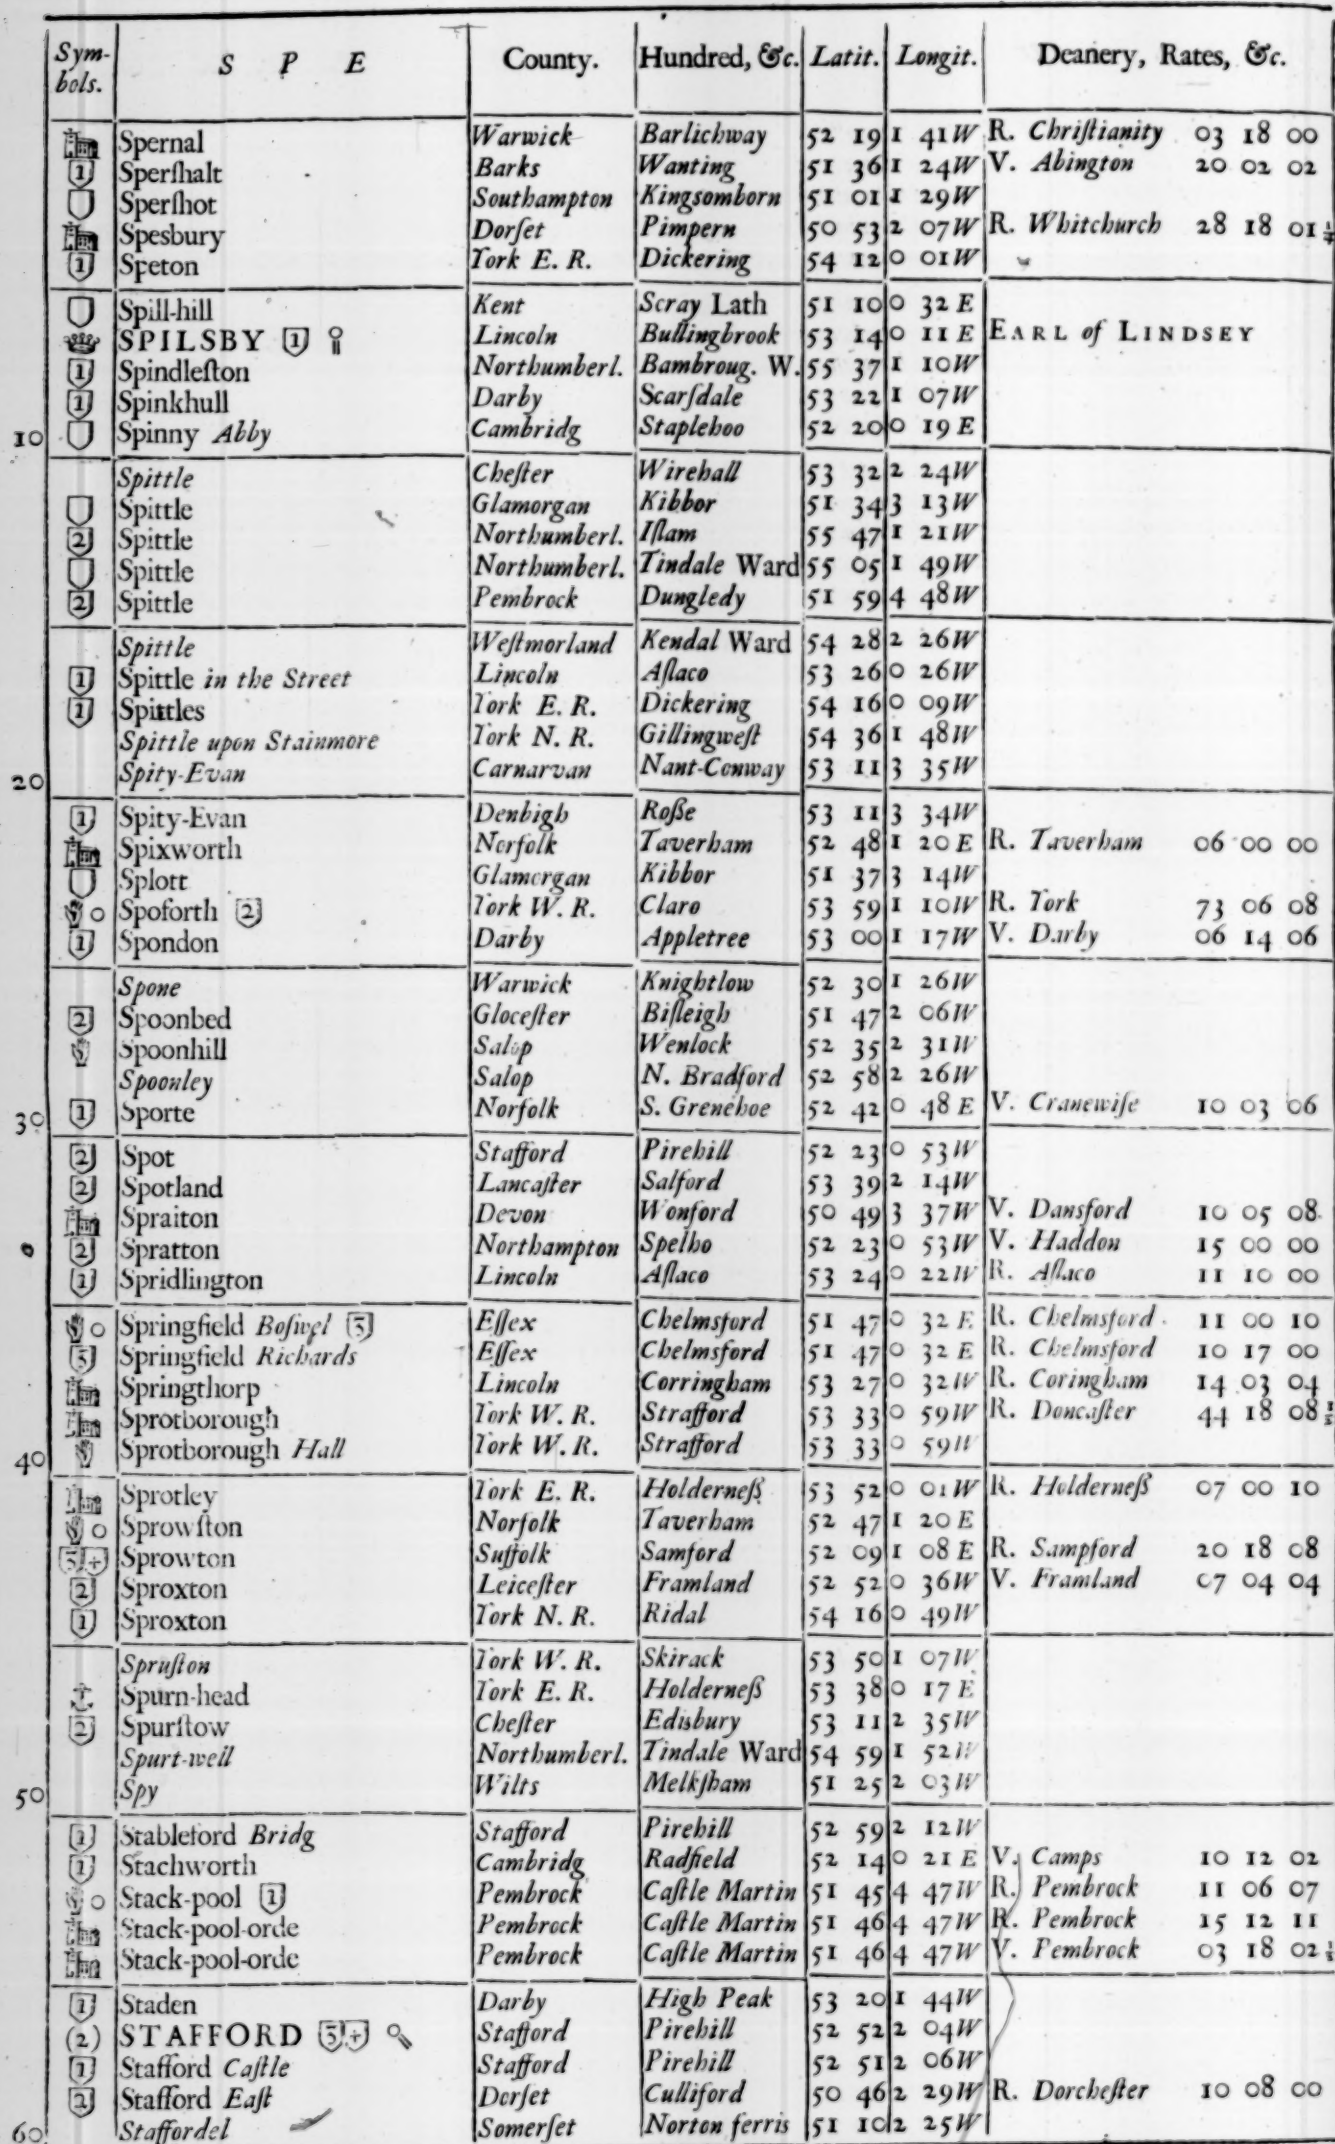 Sym-bols. S P E County. Hundred, &c. Latit. Longit. Deanery, Rates, &c.
Spernal Warwick Barlichway 52 19 1 41 W R. Chriſtianity 03 18 00
1 Sperſhalt Barks Wanting 51 36 1 24 W V. Abington 20 02 02
Sperſhot Southampton Kingsomborn 51 01 1 29 W
Spesbury Dorſet Pimpern 50 53 2 07 W R. Whitchurch 28 18 01 ¼
1 Speton York E. R. Dickering 54 12 0 01 W
Spill-hill Kent Scray Lath 51 10 0 32 E
SPILSBY 1 Lincoln Bullingbrook 53 14 0 11 E EARL of LINDSEY
1 Spindleſton Northumberl. Bambroug. W. 55 37 1 10 W
1 Spinkhull Darby Scarſdale 53 22 1 07 W
10 Spinny Abby Cambridg Staplehoo 52 20 0 19 E
Spittle Cheſter Wirehall 53 32 2 24 W
Spittle Glamorgan Kibbor 51 34 3 13 W
2 Spittle Northumberl. Iſlam 55 47 1 21 W
Spittle Northumberl. Tindale Ward 55 05 1 49 W
2 Spittle Pembrock Dungledy 51 59 4 48 W
Spittle Weſtmorland Kendal Ward 54 28 2 26 W
1 Spittle in the Street Lincoln Aſlaco 53 26 0 26 W
1 Spittles York E. R. Dickering 54 16 0 09 W
Spittle upon Stainmore York N. R. Gillingweſt 54 36 1 48 W
20 Spity-Evan Carnarvan Nant-Conway 53 11 3 35 W
1 Spity-Evan Denbigh Roße 53 11 3 34 W
Spixworth Norfolk Taverham 52 48 1 20 E R. Taverham 06 00 00
Splott Glamorgan Kibbor 51 37 3 14 W
Spoforth 2 York W. R. Claro 53 59 1 10 W R. York 73 06 08
1 Spondon Darby Appletree 53 00 1 17 W V. Darby 06 14 06
Spone Warwick Knightlow 52 30 1 26 W
2 Spoonbed Gloceſter Biſleigh 51 47 2 06 W
Spoonhill Salop Wenlock 52 35 2 31 W
Spoonley Salop N. Bradford 52 58 2 26 W
30 1 Sporte Norfolk S. Grenehoe 52 42 0 48 E V. Cranewiſe 10 03 06
2 Spot Stafford Pirehill 52 23 0 53 W
2 Spotland Lancaſter Salford 53 39 2 14 W
Spraiton Devon Wonford 50 49 3 37 W V. Dansford 10 05 08
2 Spratton Northampton Spelho 52 23 0 53 W V. Haddon 15 00 00
1 Spridlington Lincoln Aſlaco 53 24 0 22 W R. Aſlaco 11 10 00
Springfield Boſwel 3 Eſſex Chelmsford 51 47 0 32 E R. Chelmsford 11 00 10
3 Springfield Richards Eſſex Chelmsford 51 47 0 32 E R. Chelmsford 10 17 00
Springthorp Lincoln Corringham 53 27 0 32 W R. Coringham 14 03 04
Sprotborough York W. R. Strafford 53 33 0 59 W R. Doncaſter 44 18 08
40 Sprotborough Hall York W. R. Strafford 53 33 0 59 W
Sprotley York E. R. Holderneß 53 52 0 01 W R. Holderneß 07 00 10
Sprowſton Norfolk Taverham 52 47 1 20 E
3 + Sprowton Suffolk Samford 52 09 1 08 E R. Sampford 20 18 08
2 Sproxton Leiceſter Framland 52 52 0 36 W V. Framland 07 04 04
1 Sproxton York N. R. Ridal 54 16 0 49 W
Spruſton York W. R. Skirack 53 50 1 07 W
Spurn-head York E. R. Holderneß 53 38 0 17 E
2 Spurſtow Cheſter Edisbury 53 11 2 35 W
Spurt-well Northumberl. Tindale Ward 54 59 1 52 W
50 Spy Wilts Melkſham 51 25 2 03 W
1 Stableford Bridg Stafford Pirehill 52 59 2 12 W
1 Stachworth Cambridg Radfield 52 14 0 21 E V. Camps 10 12 02
Stack-pool 1 Pembrock Caſtle Martin 51 45 4 47 W R. Pembrock 11 06 07
Stack-pool-orde Pembrock Caſtle Martin 51 46 4 47 W R. Pembrock 15 12 11
Stack-pool-orde Pembrock Caſtle Martin 51 46 4 47 W V. Pembrock 03 18 02
1 Staden Darby High Peak 53 20 1 44 W
(2) STAFFORD 3 + Stafford Pirehill 52 52 2 04 W
1 Stafford Caſtle Stafford Pirehill 52 51 2 06 W
2 Stafford Eaſt Dorſet Culliford 50 46 2 29 W R. Dorcheſter 10 08 00
60 Staffordel Somerſet Norton ferris 51 10 2 25 W